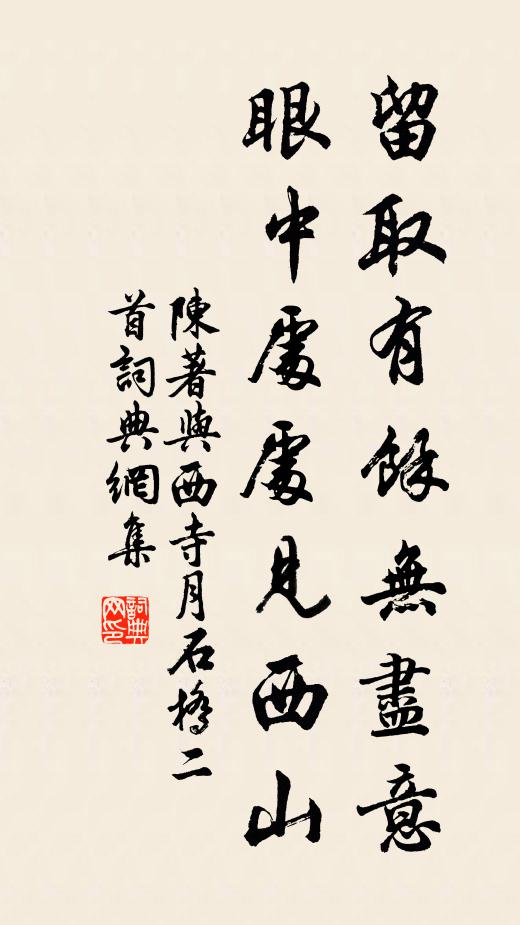 留取有餘無盡意
眼中處處見西山
陳著與西寺月石橋二
首詞典網集
詞典
网印